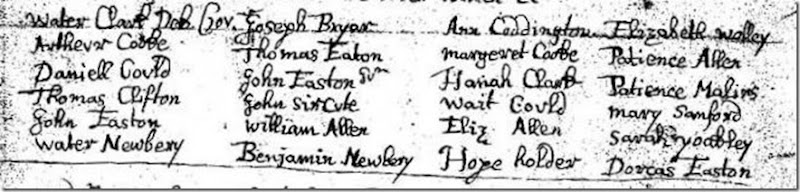 Water Clark Deb Gov.
Arthevr Cooke
Daniell Gould
Thomas Clifton
John Easton
Water Newbery
Joseph Bryar
Thomas Eaton
John Easton
John Sircute
William Allen
Benjamin Newbery
Ann Coddington
margeret Cooke
Hanah Clark
Wait Gould
Eliz Allen
Hope holder
Elizabeth wolley
Patience Allen
Patience Malins
mary Sanford
Sarah yoakley
Dorcas Easton